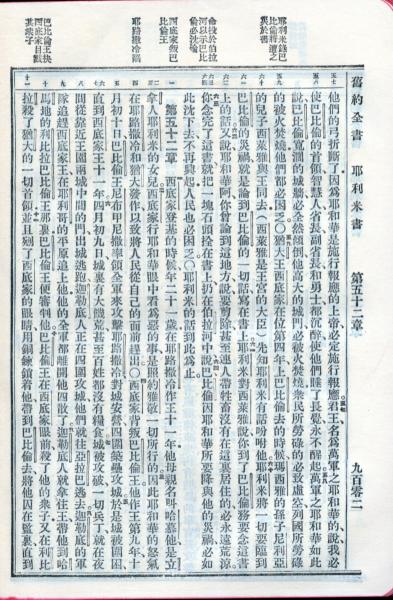 舊約全書 耶利米書 第五十二章 九百零二
耶利米錄巴
比倫將遭之
災於書
命投於伯拉
河以示巴比
倫必沈淪
西底家叛巴
比倫王
耶路撒冷陷
巴比倫王抉
西底家目戮
其衆子
他們的弓折斷了因爲耶和華是施行報應的上帝必定施行報應君王名爲萬軍之耶和華的說我必
使巴比倫的首領智慧人省長副省長和勇士都沉醉使他們睡了長覺永不醒起萬軍之耶和華如此
說巴比倫寬濶的城牆必全然傾倒他高大的城門必被火焚燒衆民所勞碌的必致虛空列國所勞碌
的被火焚燒他們都必困乏○猶大王西底家在位第四年上巴比倫去的時候瑪西雅的孫子尼利亞
的兒子西萊雅與王同去(西萊雅是王宮的大臣)先知耶利米有話吩咐他耶利米將一切要臨到
巴比倫的災禍就是論到巴比倫的一切話寫在書上耶利米對西萊雅說你到了巴比倫務要念這書
上的話又說耶和華阿你曾論到這地方說要剪除甚至連人帶牲畜沒有在這裏居住的必永遠荒涼
你念完了這書就把一塊石頭拴在書上扔在伯拉河中說巴比倫因耶和華所要降與他的災禍必如
此沈下去不再興起人民也必困乏○耶利米的話到此爲止
第五十二章 西底家登基的時候年二十一歲在耶路撒冷作王十一年他母親名叫哈慕他是立
拿人耶利米的女兒西底家行耶和華眼中看爲惡的事是照約雅敬一切所行的因此耶和華的怒氣
在耶路撒冷和猶大發作以致將人民從自己的面前趕出○西底家背叛巴比倫王他作王第九年十
月初十日巴比倫王尼布甲尼撒率領全軍來攻擊耶路撒冷對城安營四圍築壘攻城於是城被圍困
直到西底家王十一年四月初九日城裏有大饑荒甚至百姓都沒有糧食城被攻破一切兵丁就在夜
間從靠近王園兩城中間的門出城逃跑迦勒底人正在四圍攻城他們就往亞拉巴逃去迦勒底的軍
隊追趕西底家王在耶利哥的平原追上他他的全軍都離開他四散了迦勒底人就拿住王帶他到哈
馬地的利比拉巴比倫王那裏巴比倫王便審判他巴比倫王在西底家眼前殺了他的衆子又在利比
拉殺了猶大的一切首領並且剜了西底家的眼睛用銅鍊鎖着他帶到巴比倫去將他囚在監裏直到